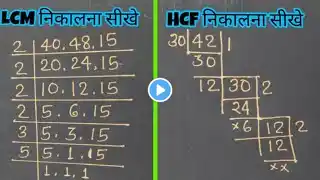 LCM निकालना सीखे
2 40.48.15
2 20.24.15
2 10.12.15
2 5.6.15
3 5.3.15
5 5.1.15
1.1.1
HCF निकालना सीखे
30 42 1
30
12 30 2
24
×6 12 2
12
××